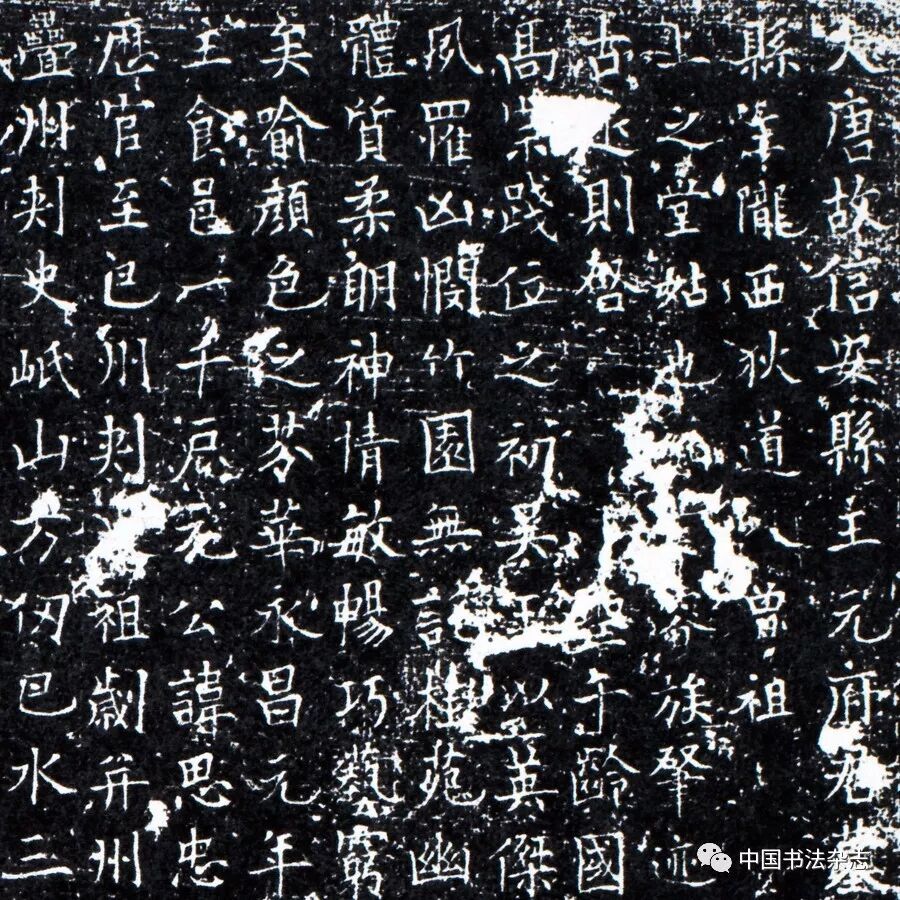 大唐故信安縣主元府君墓
縣隴西狄道人曾祖
上之堂姑也分族肇
古則啓午齡國
高宗踐位之初吳王以英傑
夙罹凶憫竹園無託桂苑幽
體質柔朗神情敏暢巧藝窮
矣喻顔色之芬華永昌元年
主食邑一千户元公諱思忠
歷官至巴州刺祖劌并州
疊州刺史岷山方仞巴水三
中国书法杂志